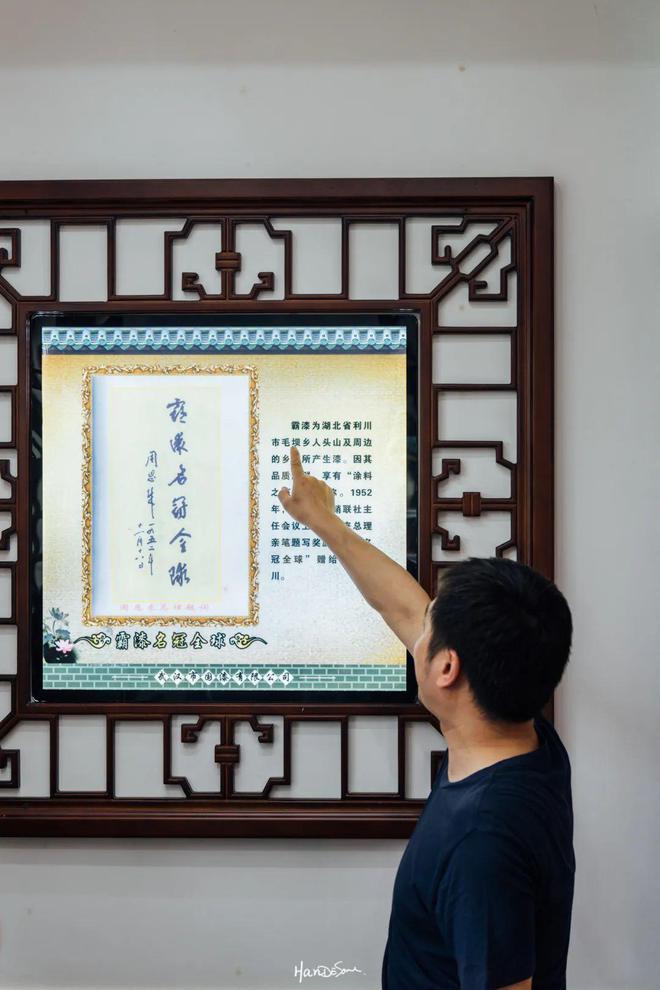 霸漆名冠全球
周恩来
一九五二年
十二月十六日
周恩来总理题词
霸漆名冠全球
霸漆为湖北省利川
市毛坝乡人头山及周边
的乡 所产生漆。因其
品质 享有“涂料
之 。1952
年， 销联社主
任会议上 总理
亲笔题写奖 名
冠全球”赠给
川。
武汉市国漆有限公司
HanDeSome